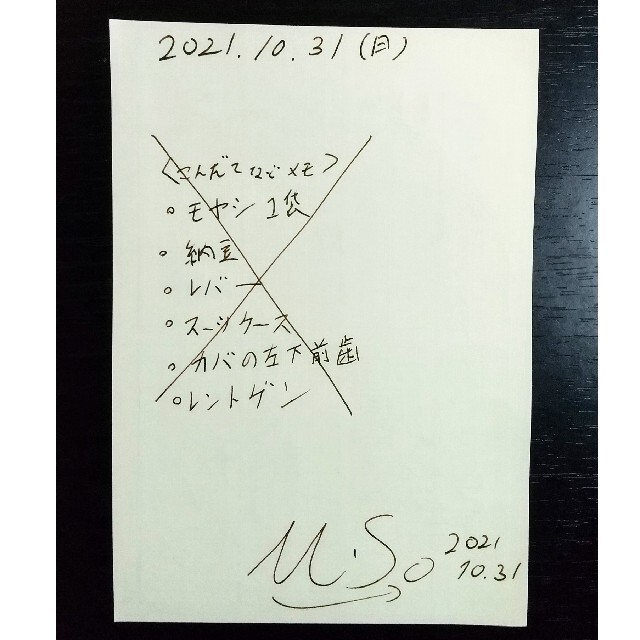 2021.10.31(日)
<こんだてなどメモ>
○ モヤシ 1袋
○ 納豆
○ レバー
○ スーツケース
○ カバの左下前歯
○ レントゲン
M.So
2021
10.31